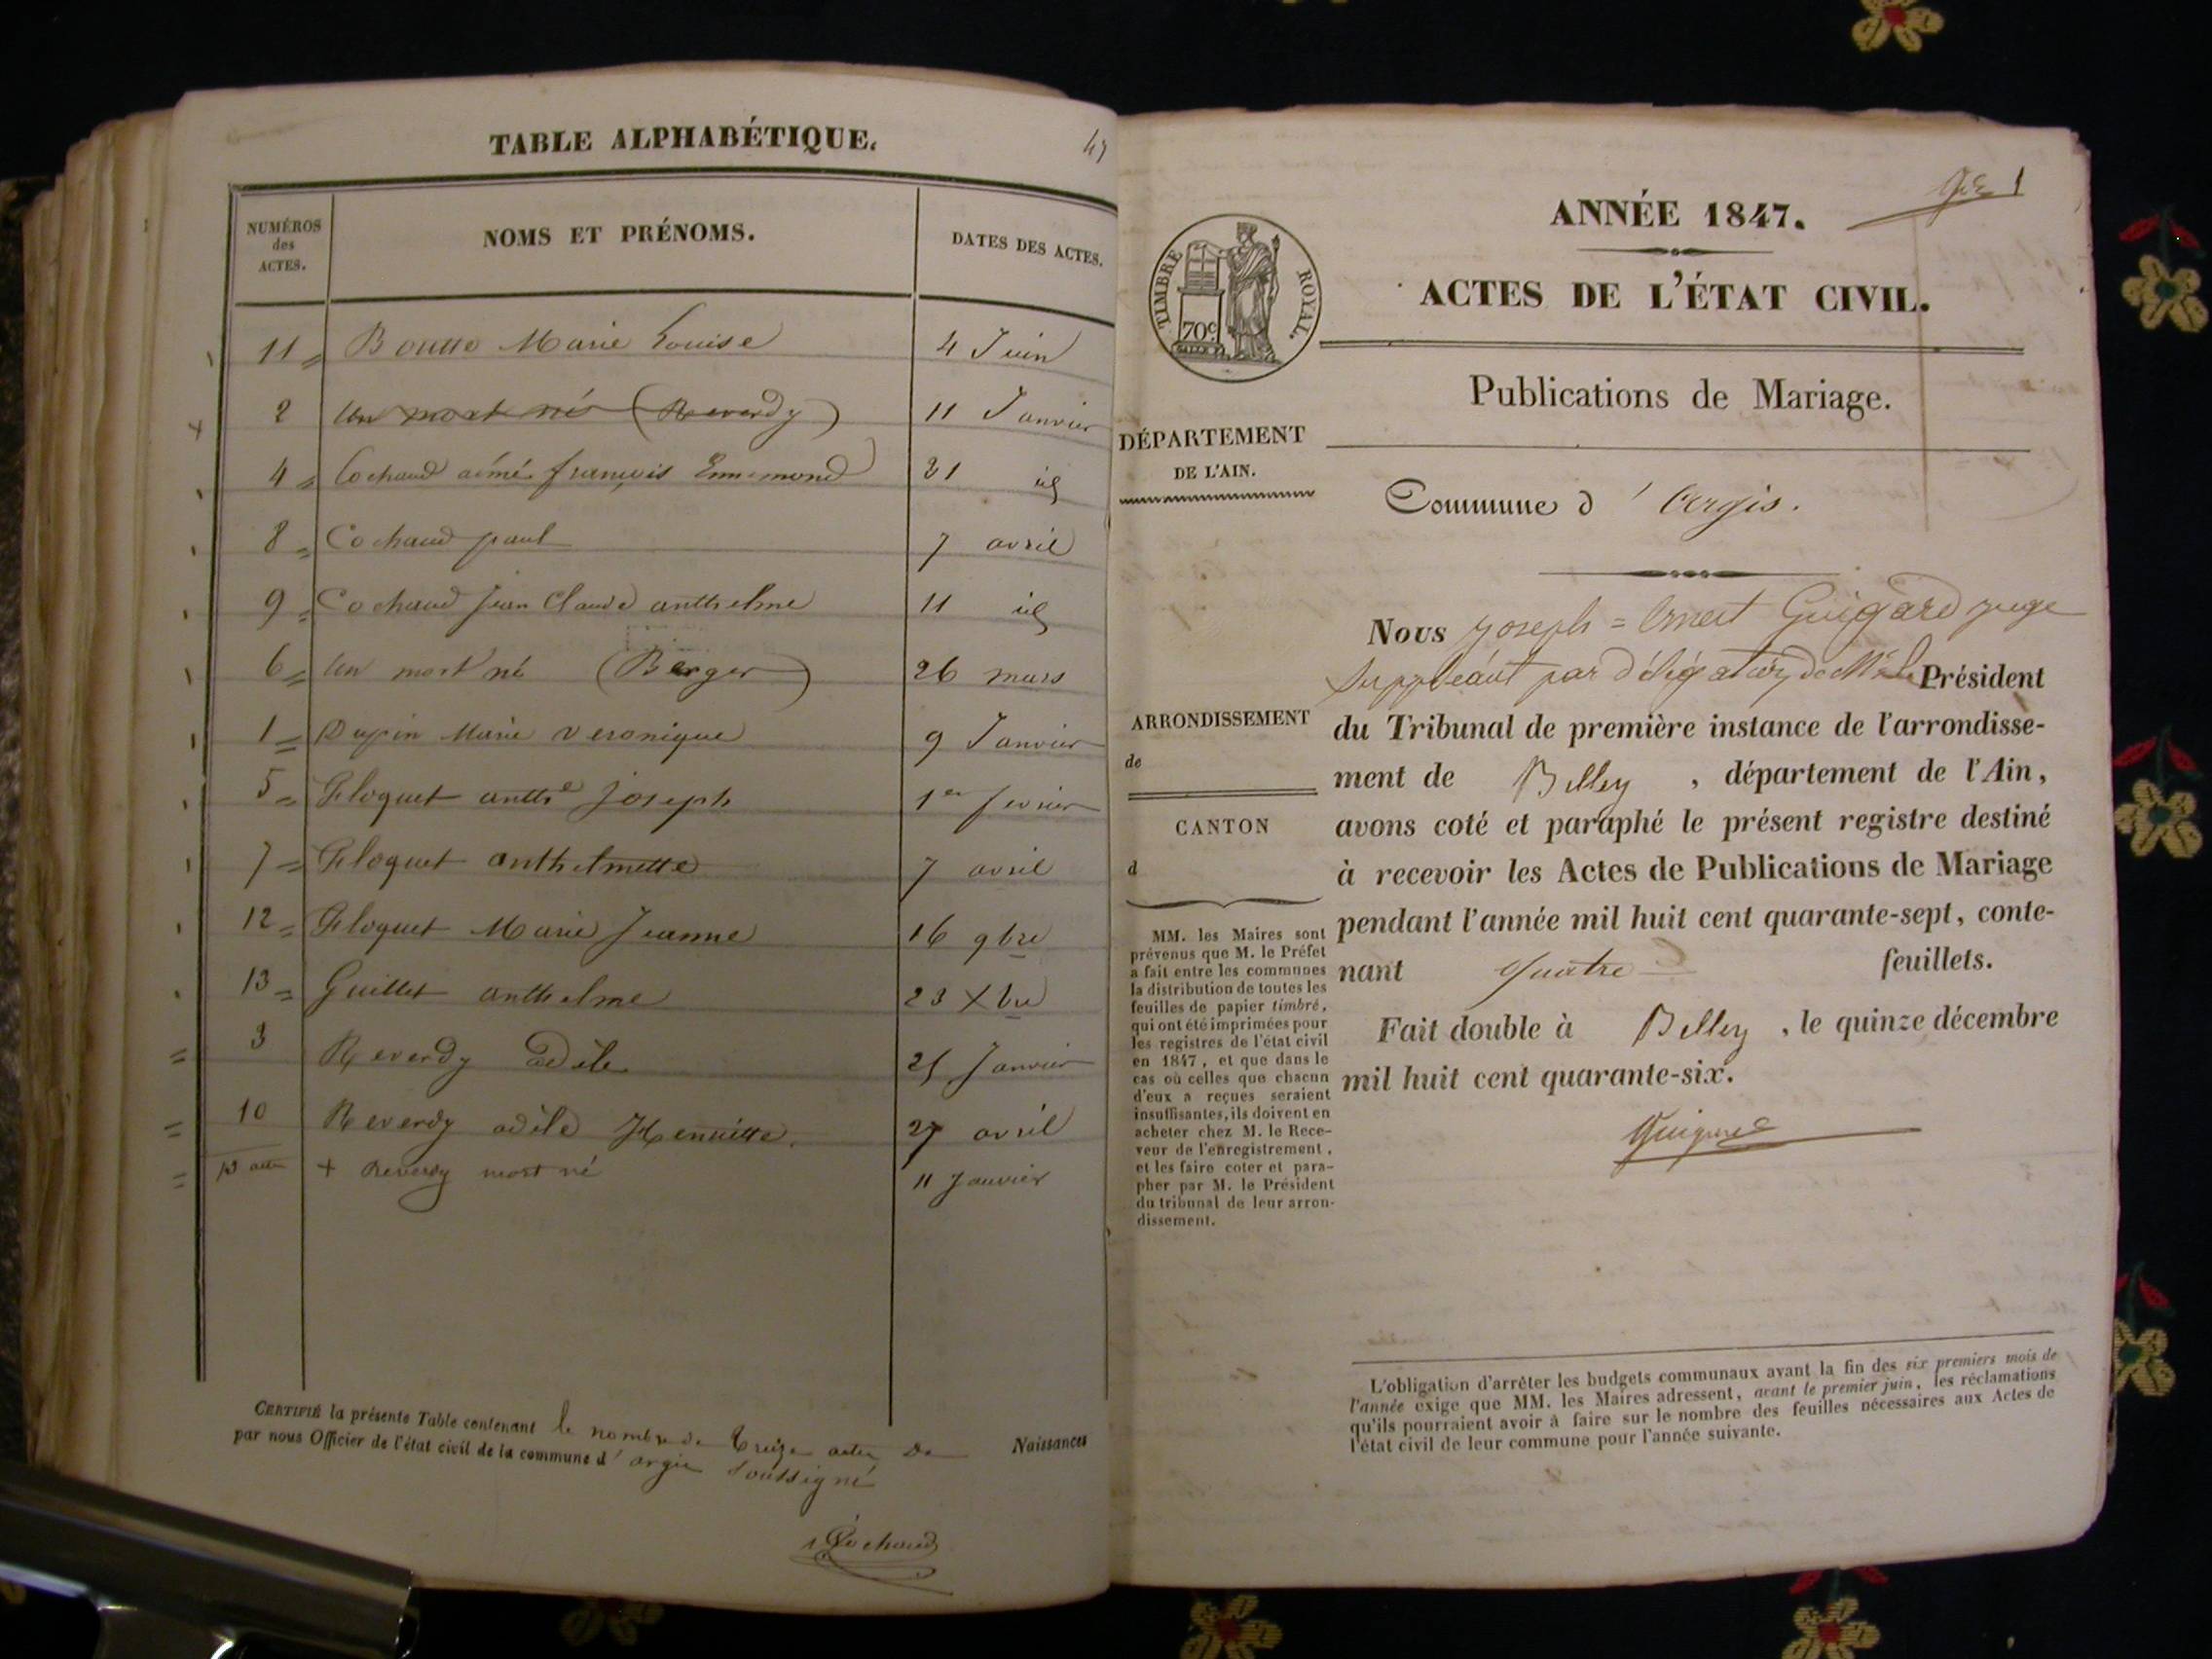 TABLE ALPHABÉTIQUE.
47
NUMÉROS des ACTES. NOMS ET PRÉNOMS. DATES DES ACTES.
11 = Marie Louise 4 Juin
2 Un mort né (Reverdy) 11 Janvier
4 = Cochaud aimé françois Ennemond 21 id
8 = Cochaud paul 7 avril
9 = Cochaud Jean Claude anthelme 11 id
6 = Un mort né (Berger) 26 mars
1 = Dupin Marie veronique 9 Janvier
5 = Floquet anthe Joseph 1er fevrier
7 = Floquet anthelmette 7 avril
12 = Floquet Marie Jeanne 16 9bre
13 = Guillet anthelme 23 Xbre
3 Reverdy adèle 25 Janvier
10 Reverdy adèle Henriette. 27 avril
13 actes + Reverdy mort né 11 Janvier
CERTIFIÉ la présente Table contenant le nombre de treize actes De Naissances
par nous Officier de l'état civil de la commune d'argis soussigné
Cochaud
1
ANNÉE 1847.
ACTES DE L'ÉTAT CIVIL.
TIMBRE ROYAL.
70c
Publications de Mariage.
DÉPARTEMENT
DE L'AIN.
Commune d'Argis.
ARRONDISSEMENT
de
CANTON
d
MM. les Maires sont
prévenus que M. le Préfet
a fait entre les communes
la distribution de toutes les
feuilles de papier timbré,
qui ont été imprimées pour
les registres de l'état civil
en 1847, et que dans le
cas où celles que chacun
d'eux a reçues seraient
insuffisantes, ils doivent en
acheter chez M. le Rece-
veur de l'enregistrement,
et les faire coter et para-
pher par M. le Président
du tribunal de leur arron-
dissement.
Nous Joseph = Ernest Guigard juge
Suppléant par délégation de Mr le Président
du Tribunal de première instance de l'arrondisse-
ment de Belley, département de l'Ain,
avons coté et paraphé le présent registre destiné
à recevoir les Actes de Publications de Mariage
pendant l'année mil huit cent quarante-sept, conte-
nant quatre feuillets.
Fait double à Belley, le quinze décembre
mil huit cent quarante-six.
Guigard
L'obligation d'arrêter les budgets communaux avant la fin des six premiers mois de
l'année exige que MM. les Maires adressent, avant le premier juin, les réclamations
qu'ils pourraient avoir à faire sur le nombre des feuilles nécessaires aux Actes de
l'état civil de leur commune pour l'année suivante.